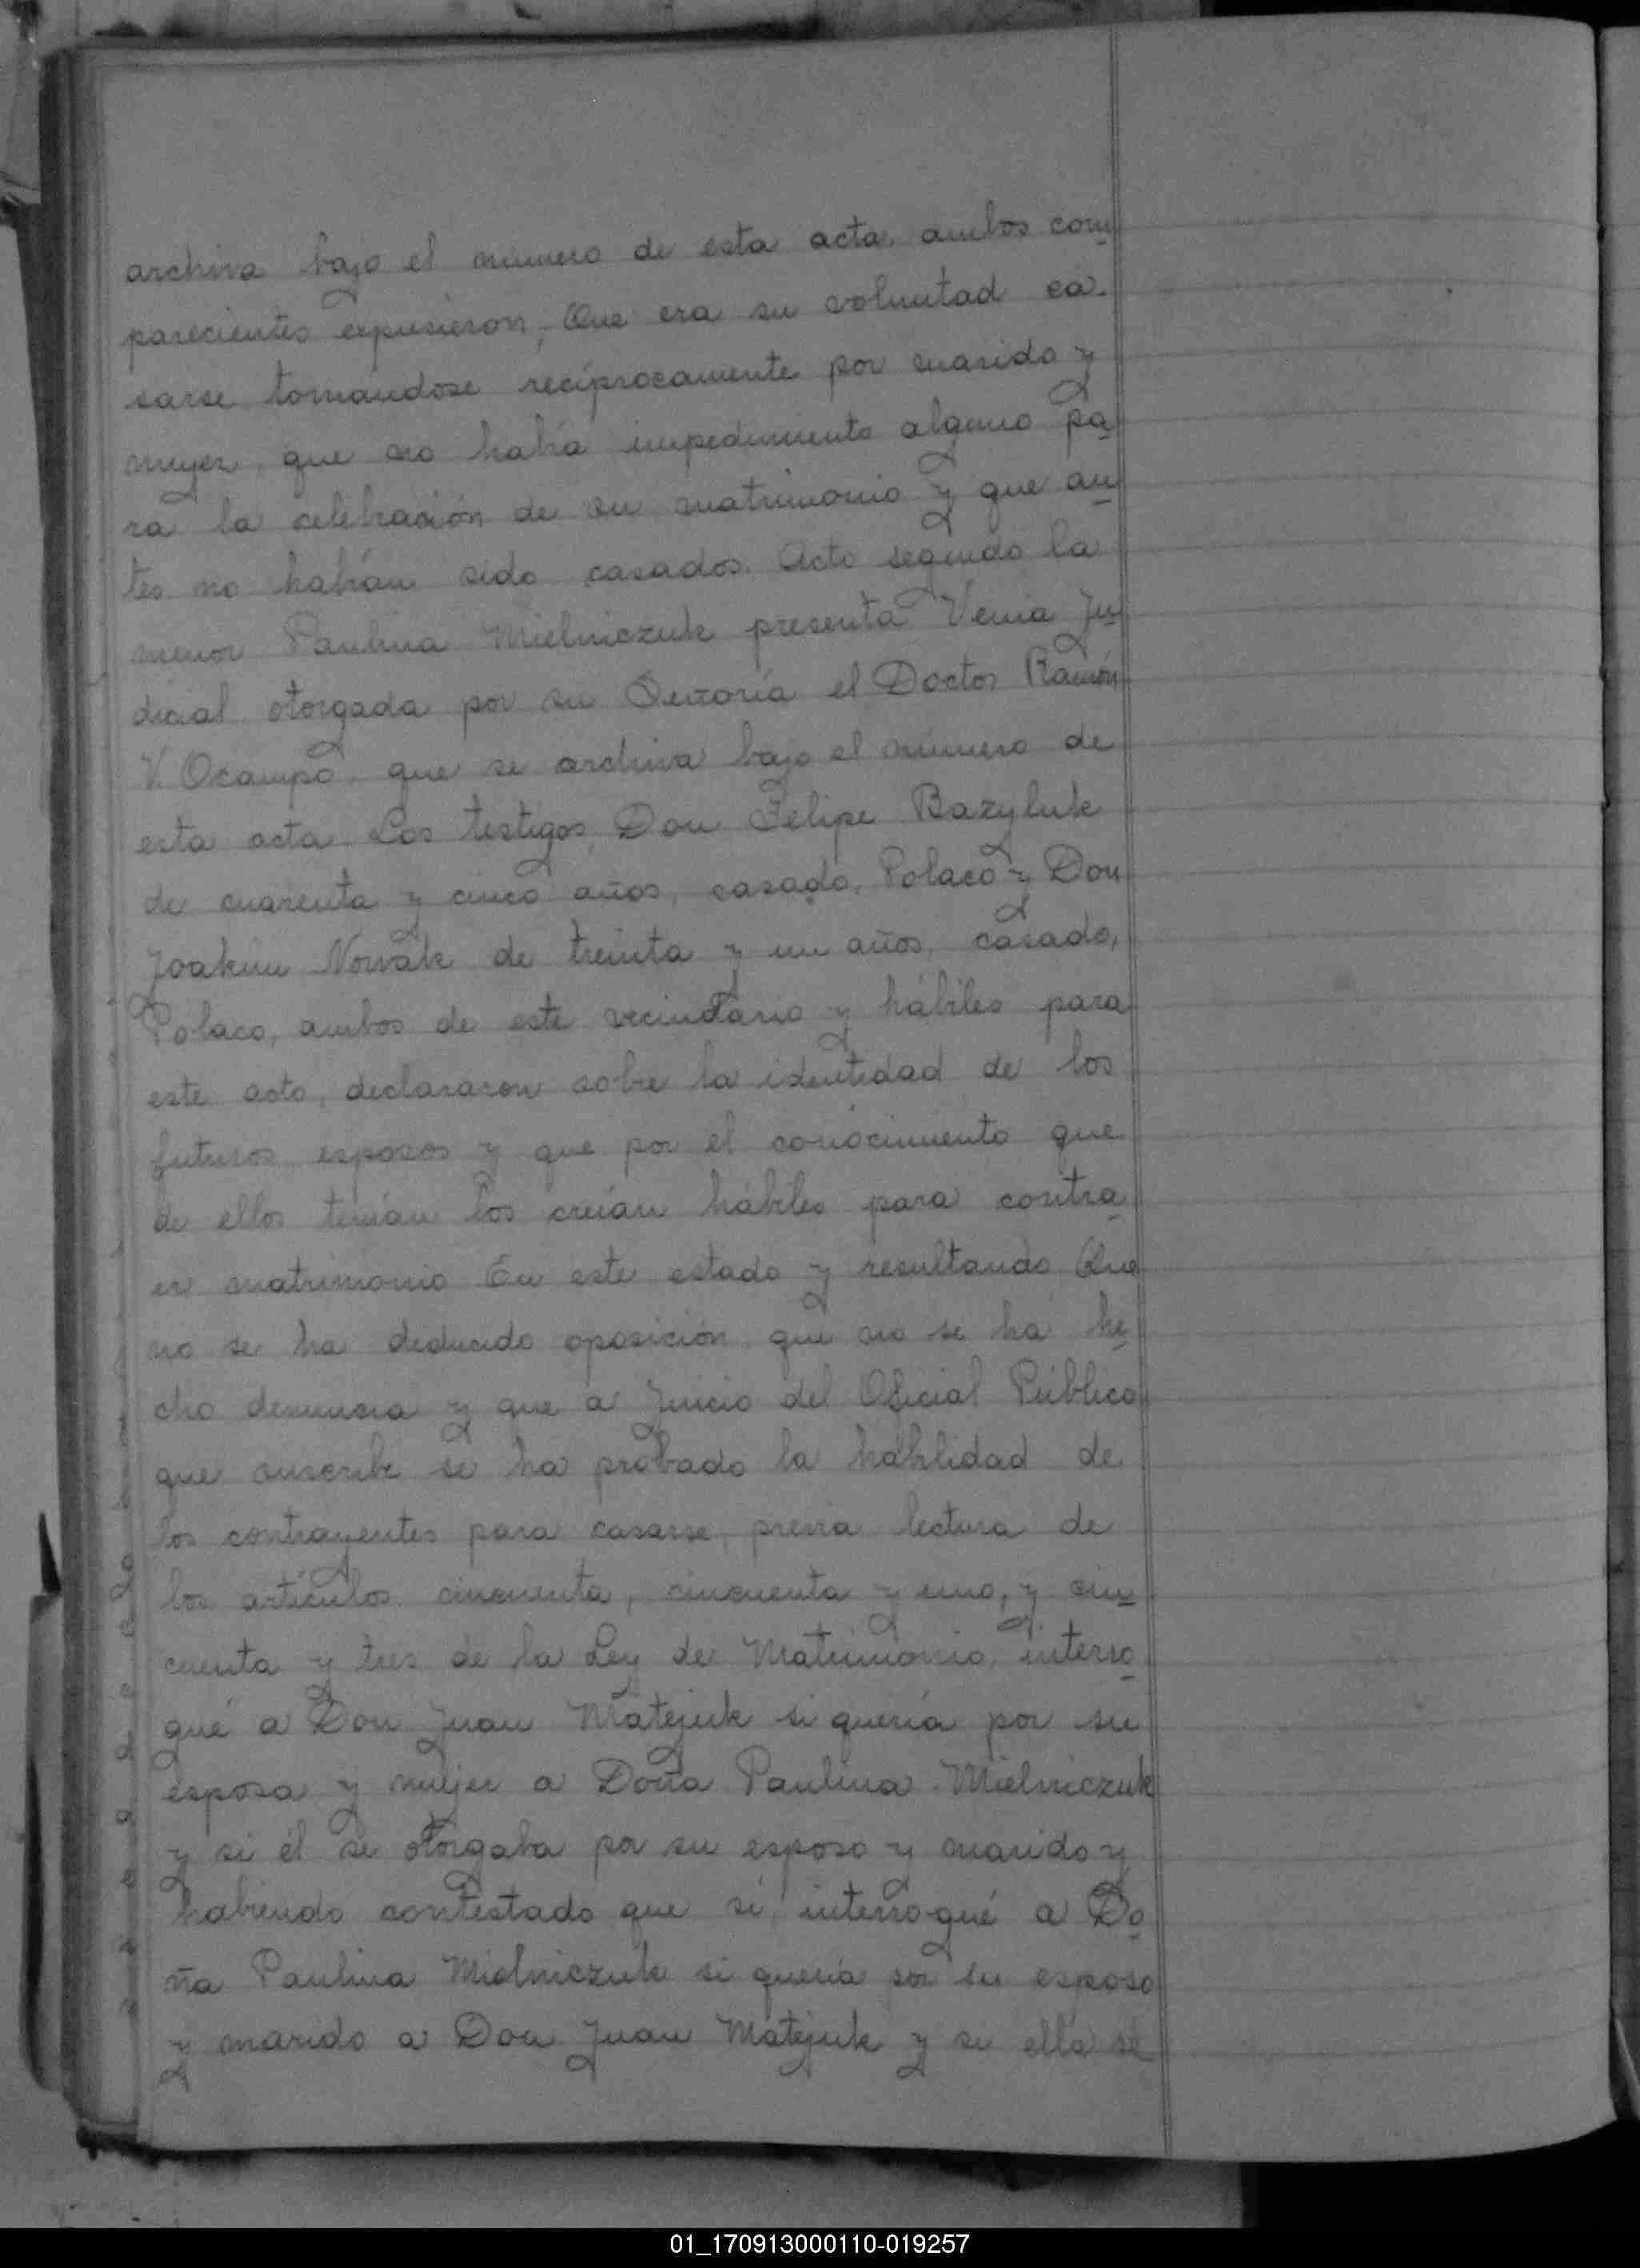 archiva bajo el número de esta acta, ambos com
parecientes expusieron; Que era su voluntad ca-
sarse tomandose recíprocamente por marido y
mujer, que no había impedimento alguno pa
ra la celebración de su matrimonio y que an
tes no habían sido casados. Acto seguido la
menor Paulina Mielniczuk presenta Venia Ju
dicial otorgada por su Señoría el Doctor Ramón
V. Ocampo, que se archiva bajo el número de
esta acta. Los testigos, Don Felipe Bazyluk
de cuarenta y cinco años, casado, Polaco y Don
Joakim Nowak de treinta y un años, casado,
Polaco, ambos de este vecindario y hábiles para
este acto, declararon sobre la identidad de los
futuros esposos y que por el conocimiento que
de ellos tenían los creían hábiles para contra
er matrimonio En este estado y resultando Que
no se ha deducido oposición, que no se ha he
cho denuncia y que a juicio del Oficial Público
que suscribe se ha probado la habilidad de
los contrayentes para casarse, previa lectura de
los artículos cincuenta, cincuenta y uno, y cin
cuenta y tres de la Ley de Matrimonio, interro
gué a Don Juan Matejuk si quería por su
esposa y mujer a Doña Paulina Mielniczuk
y si él se otorgaba por su esposo y marido y
habiendo contestado que sí, interrogué a Do
ña Paulina Mielniczuk si quería por su esposo
y marido a Don Juan Matejuk y si ella se
01_170913000110-019257